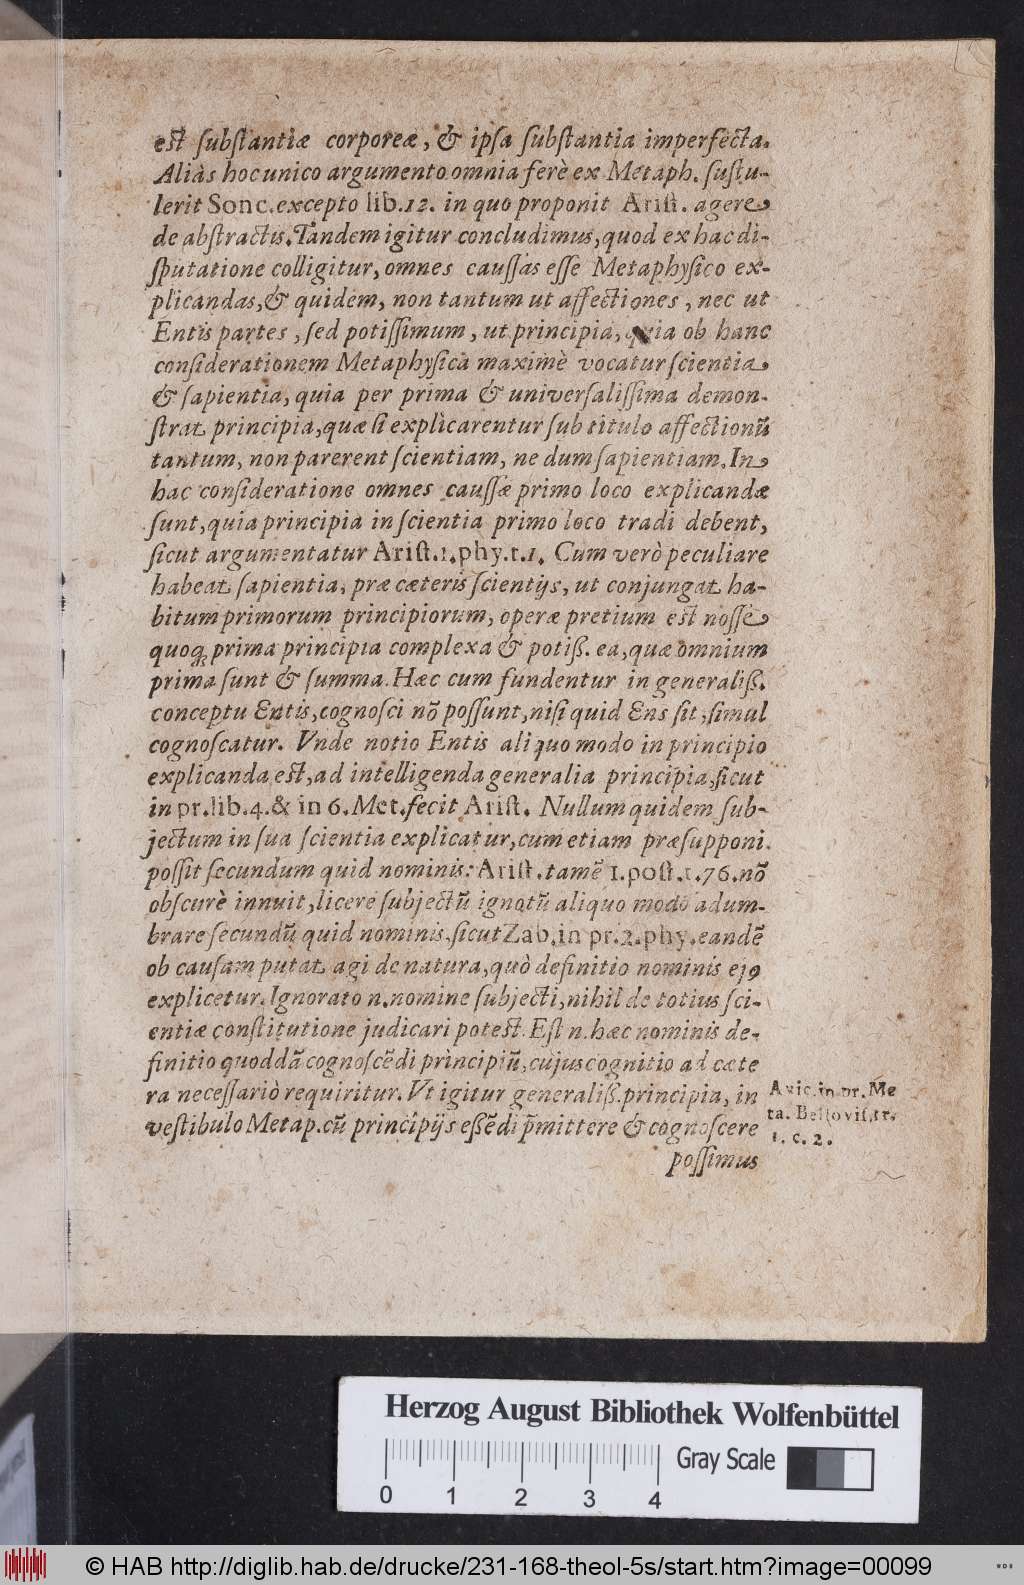 est ſubſtantiæ corporeæ, & ipſa ſubſtantia imperfecta.
Aliàs hoc unico argumento omnia ferè ex Metaph. ſuſtu-
lerit Sonc. excepto lib. 12. in quo proponit Ariſt. agere
de abſtractis. Tandem igitur concludimus, quod ex hac di-
ſputatione colligitur, omnes cauſſas eſſe Metaphyſico ex-
plicandas, & quidem, non tantum ut affectiones, nec ut
Entis partes, ſed potiſſimum, ut principia, quia ob hanc
conſiderationem Metaphyſica maximè vocatur ſcientia
& ſapientia, quia per prima & univerſaliſſima demon-
ſtrat principia, quæ ſi explicarentur ſub titulo affectionũ
tantum, non parerent ſcientiam, ne dum ſapientiam. In
hac conſideratione omnes cauſſæ primo loco explicandæ
ſunt, quia principia in ſcientia primo loco tradi debent,
ſicut argumentatur Ariſt. 1. phy. t. 1. Cum verò peculiare
habeat ſapientia, præ cæteris ſcientijs, ut conjungat ha-
bitum primorum principiorum, operæ pretium est noſſe
quoq; prima principia complexa & potiß. ea, quæ omnium
prima ſunt & ſumma. Hæc cum fundentur in generaliß.
conceptu Entis, cognoſci nõ poſſunt, niſi quid Ens ſit, ſimul
cognoſcatur. Vnde notio Entis aliquo modo in principio
explicanda est, ad intelligenda generalia principia, ſicut
in pr. lib. 4. & in 6. Met. fecit Ariſt. Nullum quidem ſub-
jectum in ſua ſcientia explicatur, cum etiam præſupponi
poſſit ſecundum quid nominis: Ariſt. tamẽ 1. poſt. t. 76. nõ
obſcurè innuit, licere ſubjectũ ignotũ aliquo modo adum-
brare ſecundũ quid nominis, ſicut Zab. in pr. 2. phy. eandẽ
ob cauſam putat agi de natura, quò definitio nominis ejꝰ
explicetur. Ignorato n. nomine ſubjecti, nihil de totius ſci-
entiæ conſtitutione judicari potest. Eſt n. hæc nominis de-
finitio quoddã cognoſcẽdi principiũ, cujus cognitio ad cæte
ra neceſſariò requiritur. Vt igitur generaliß. principia, in
veſtibulo Metap. cũ principijs eßẽdi p̃mittere & cognoſcere
poſſimus
Avic. in pr. Me
ta. Beſſoviſ. tr.
1. c. 2.
Herzog August Bibliothek Wolfenbüttel
Gray Scale
0 1 2 3 4
© HAB http://diglib.hab.de/drucke/231-168-theol-5s/start.htm?image=00099